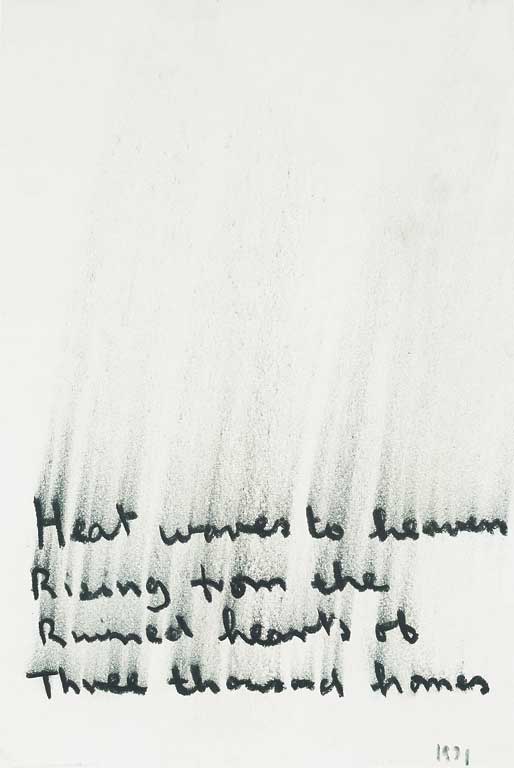 Heat waves to heaven
Rising from the
Ruined hearts of
Three thousand homes
1971